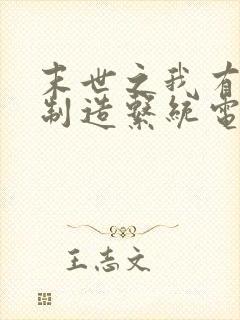 末世之我有
制造繫統電
王志文